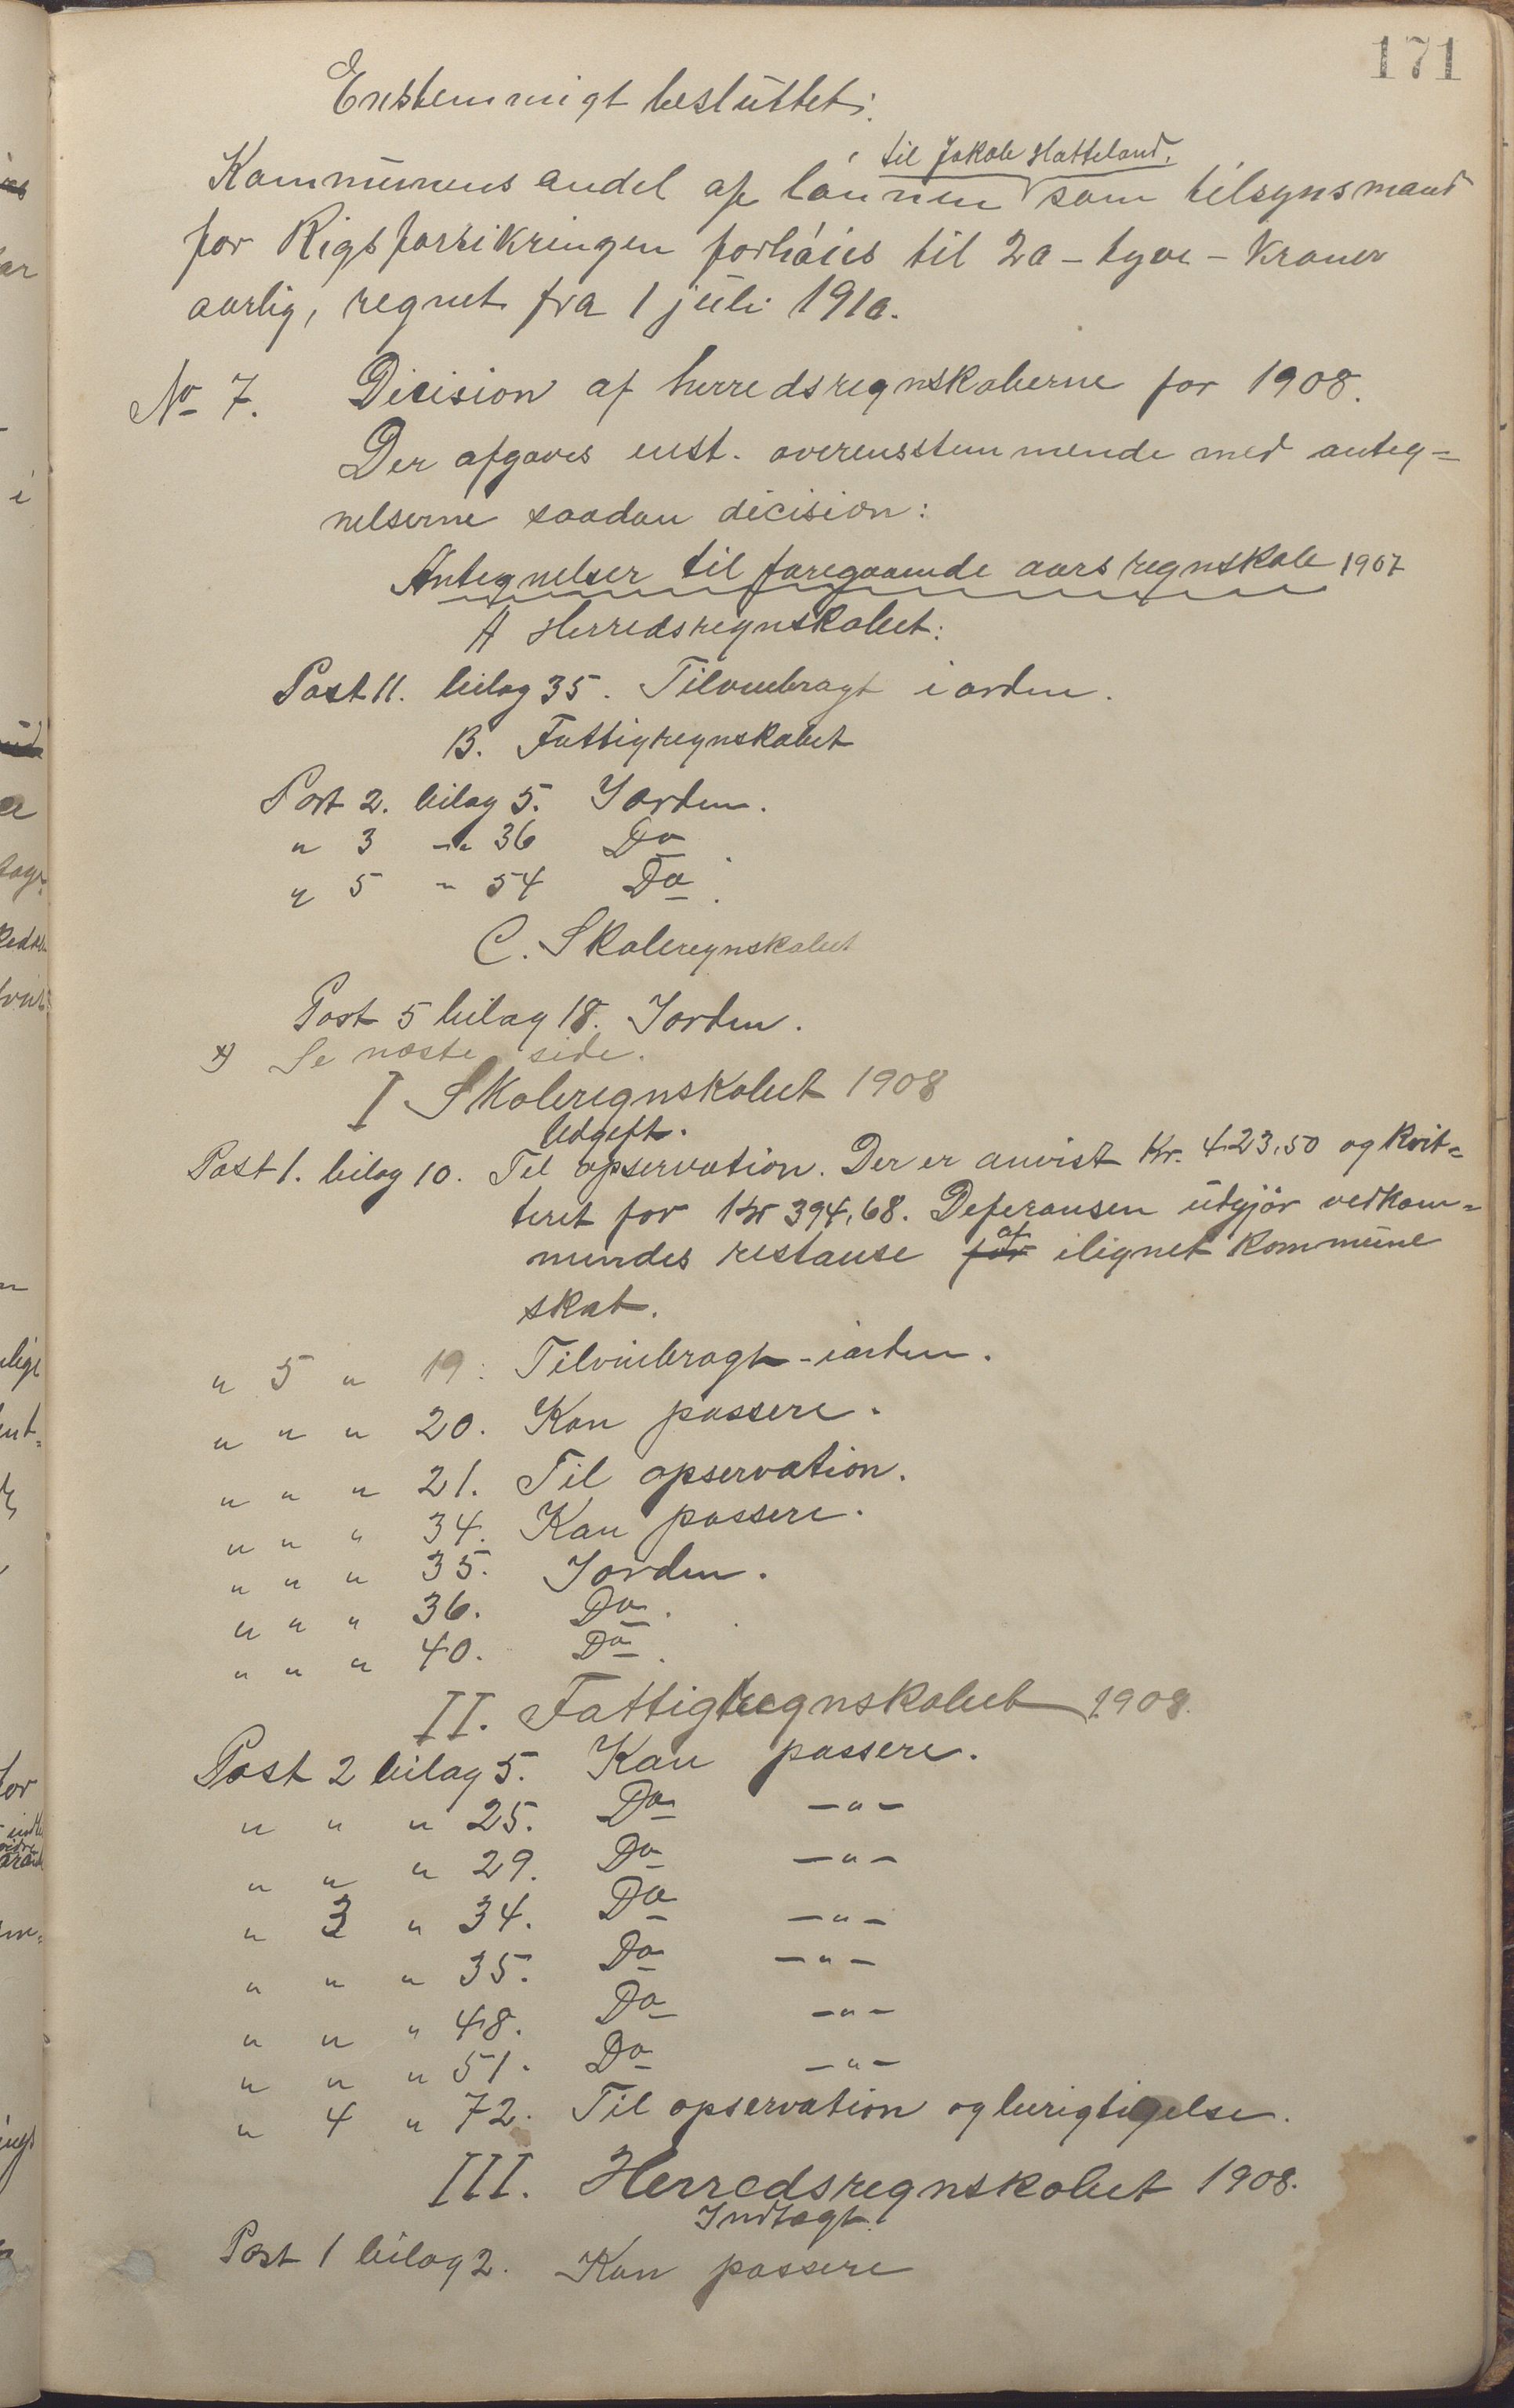 171
Enstemmigt besluttet:
til Jakob Hatteland.
Kommunens andel af lønnen som tilsynsmand
for Rigsforsikringen forhøies til 20 - tyve - kroner
aarlig, regnet fra 1 juli 1910.
No 7. Dicision af herredsregnskaberne for 1908.
Der afgaves enst. overensstemmende med anteg=
nelserne saadan dicision:
Antegnelser til foregaaende aars regnskab 1907
A Herredsregnskabet:
Post 11. bilag 35. Tilveiebragt i orden.
B. Fattigregnskabet
Post 2. bilag 5. I orden.
" 3 -"- 36 Do
" 5 " 54 Do.
C. Skoleregnskabet
Post 5 bilag 18. I orden.
x) Se næste side.
I Skoleregnskabet 1908
Udgift.
Post 1. bilag 10. Til opservation. Der er anvist Kr. 423,50 og kvit=
terit for Kr 394,68. Deferansen udgjør vedkom=
mendes restanse for af ilignet kommune
skat.
" 5 " 19. Tilveiebragt - iorden.
" " " 20. Kan passere.
" " " 21. Til opservation.
" " " 34. Kan passere.
" " " 35. I orden.
" " " 36. Do.
" " " 40. Do.
II. Fattigregnskabet 1908.
Post 2 bilag 5. Kan passere.
" " " 25. Do -"-
" " " 29. Do -"-
" 3 " 34. Do -"-
" " " 35. Do -"-
" " " 48. Do -"-
" " " 51. Do -"-
" 4 " 72. Til opservation og berigtigelse.
III. Herredsregnskabet 1908.
Indtægt.
Post 1 bilag 2. Kan passere